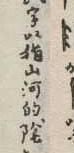 字以指山河的陰